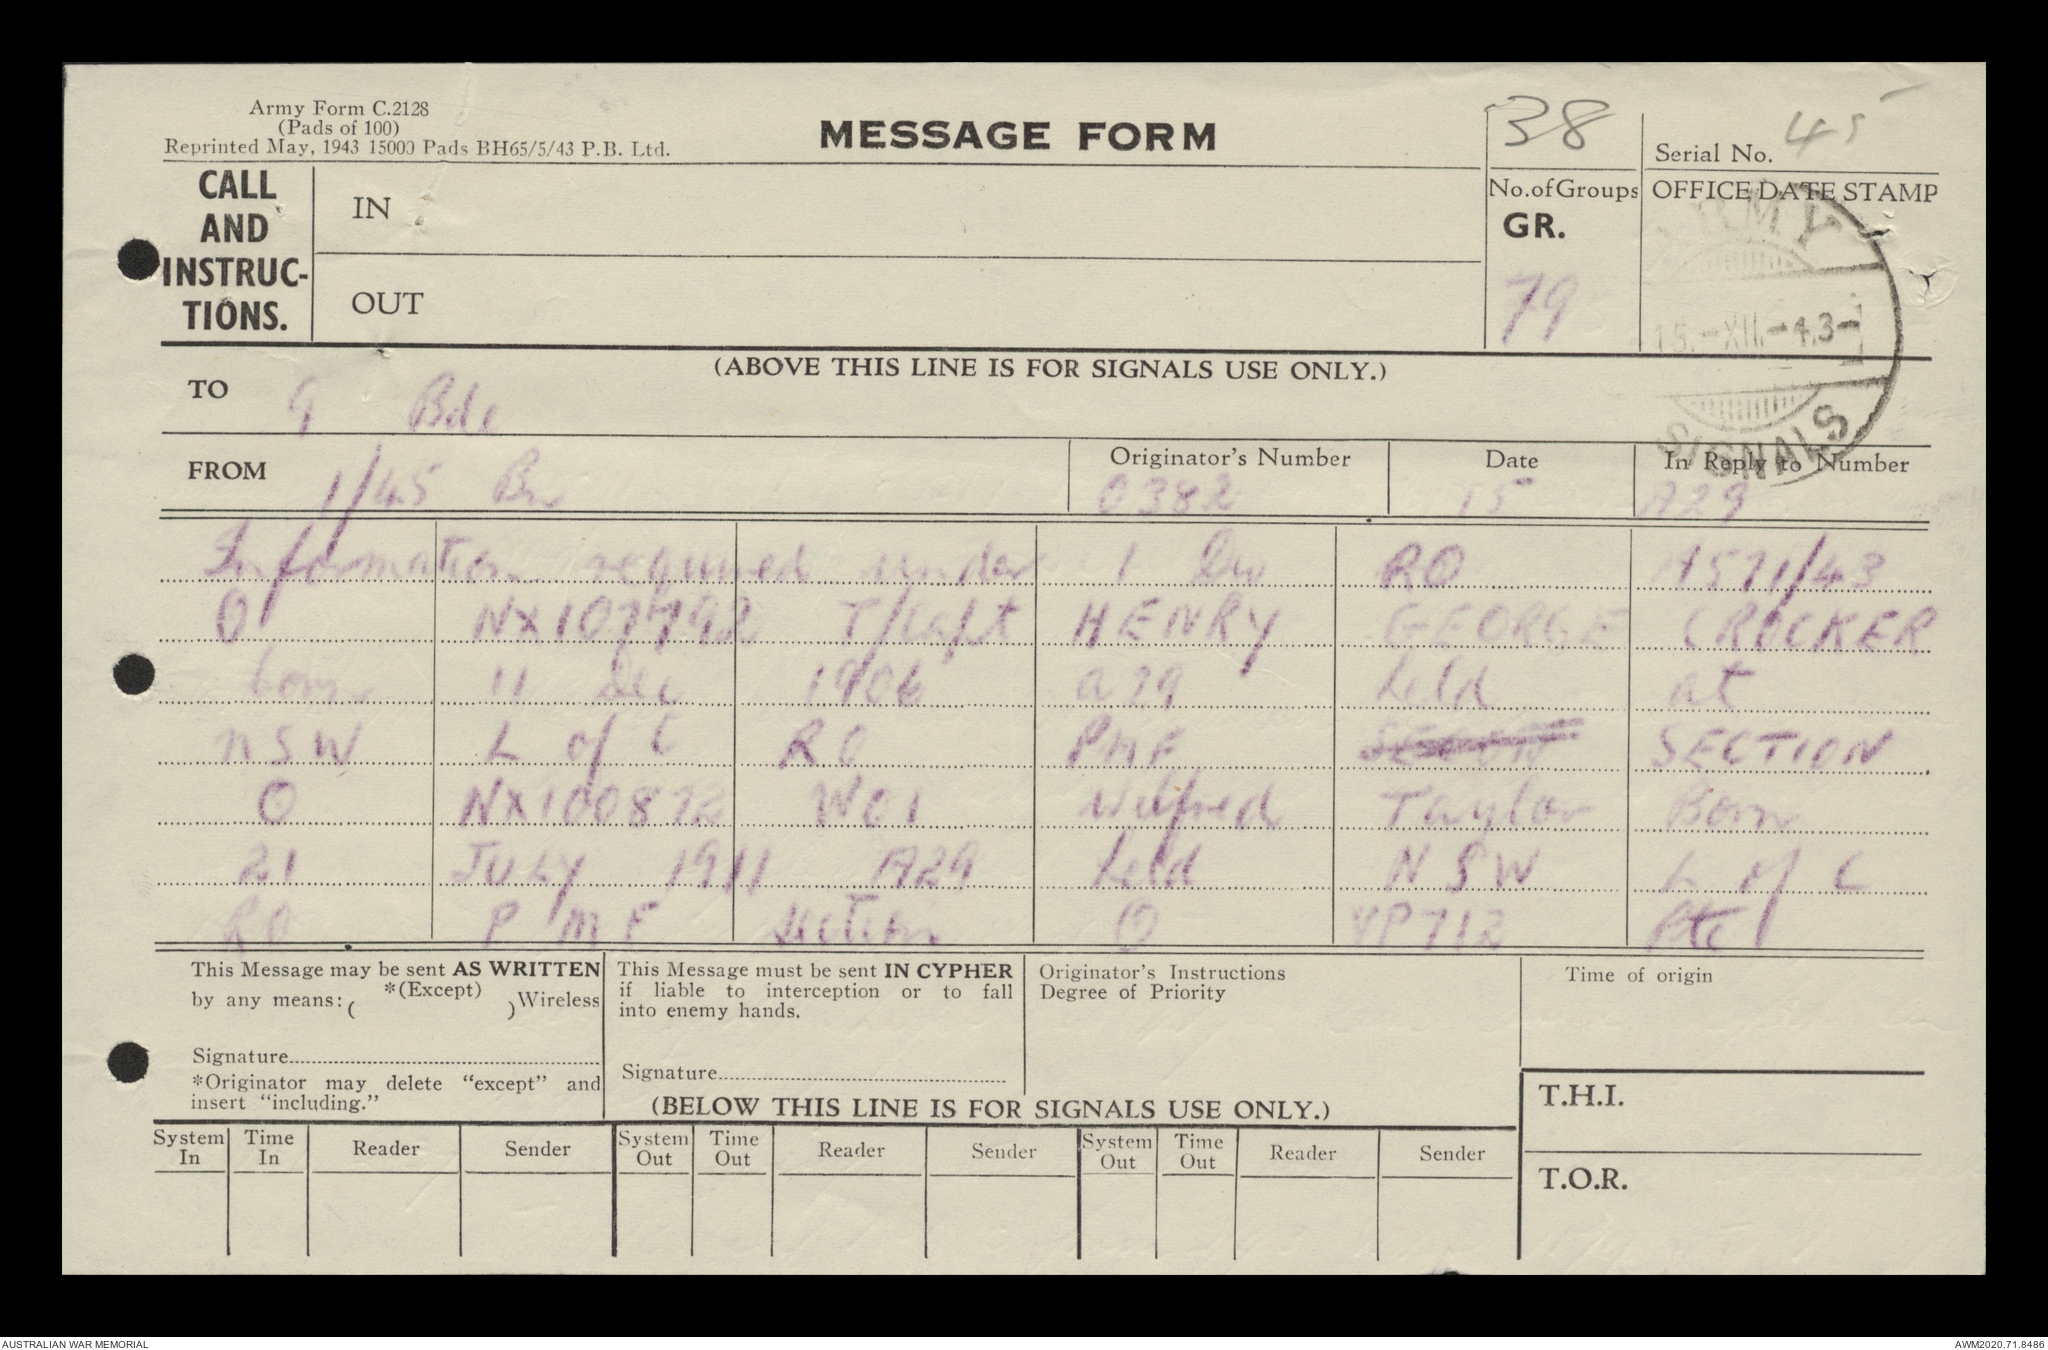 Army Form C.2128
(Pads of 100)
Reprinted May, 1943 15000 Pads BH65/5/43 P.B. Ltd.
MESSAGE FORM
38
Serial No. 45
CALL AND INSTRUC-TIONS.
IN
OUT
No. of Groups
GR.
79
OFFICE DATE STAMP
ARMY
15.-XII.-43-
SIGNALS
(ABOVE THIS LINE IS FOR SIGNALS USE ONLY.)
TO 9 Bde
FROM 1/45 Bn
Originator's Number 0382
Date 15
In Reply to Number A29
Information required under 1 Div RO 1571/43
O NX107792 T/Capt HENRY GEORGE CROCKER
born 11 Dec 1906 a29 held at
NSW L of C RO PMF SECTION
O NX100872 WO1 Wilfred Taylor Born
21 JULY 1911 A29 held NSW L of C
RO P M F section O VP712 Pte
This Message may be sent AS WRITTEN
by any means: ( *(Except) ) Wireless
Signature
*Originator may delete "except" and
insert "including."
This Message must be sent IN CYPHER
if liable to interception or to fall
into enemy hands.
Signature
Originator's Instructions
Degree of Priority
Time of origin
(BELOW THIS LINE IS FOR SIGNALS USE ONLY.)
T.H.I.
T.O.R.
System In
Time In
Reader
Sender
System Out
Time Out
Reader
Sender
System Out
Time Out
Reader
Sender
AUSTRALIAN WAR MEMORIAL
AWM2020.71.8486